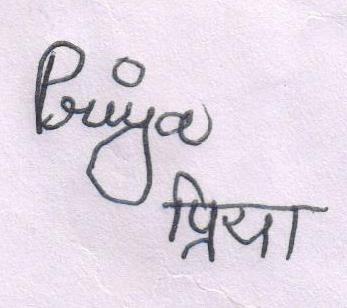 Priya
प्रिया